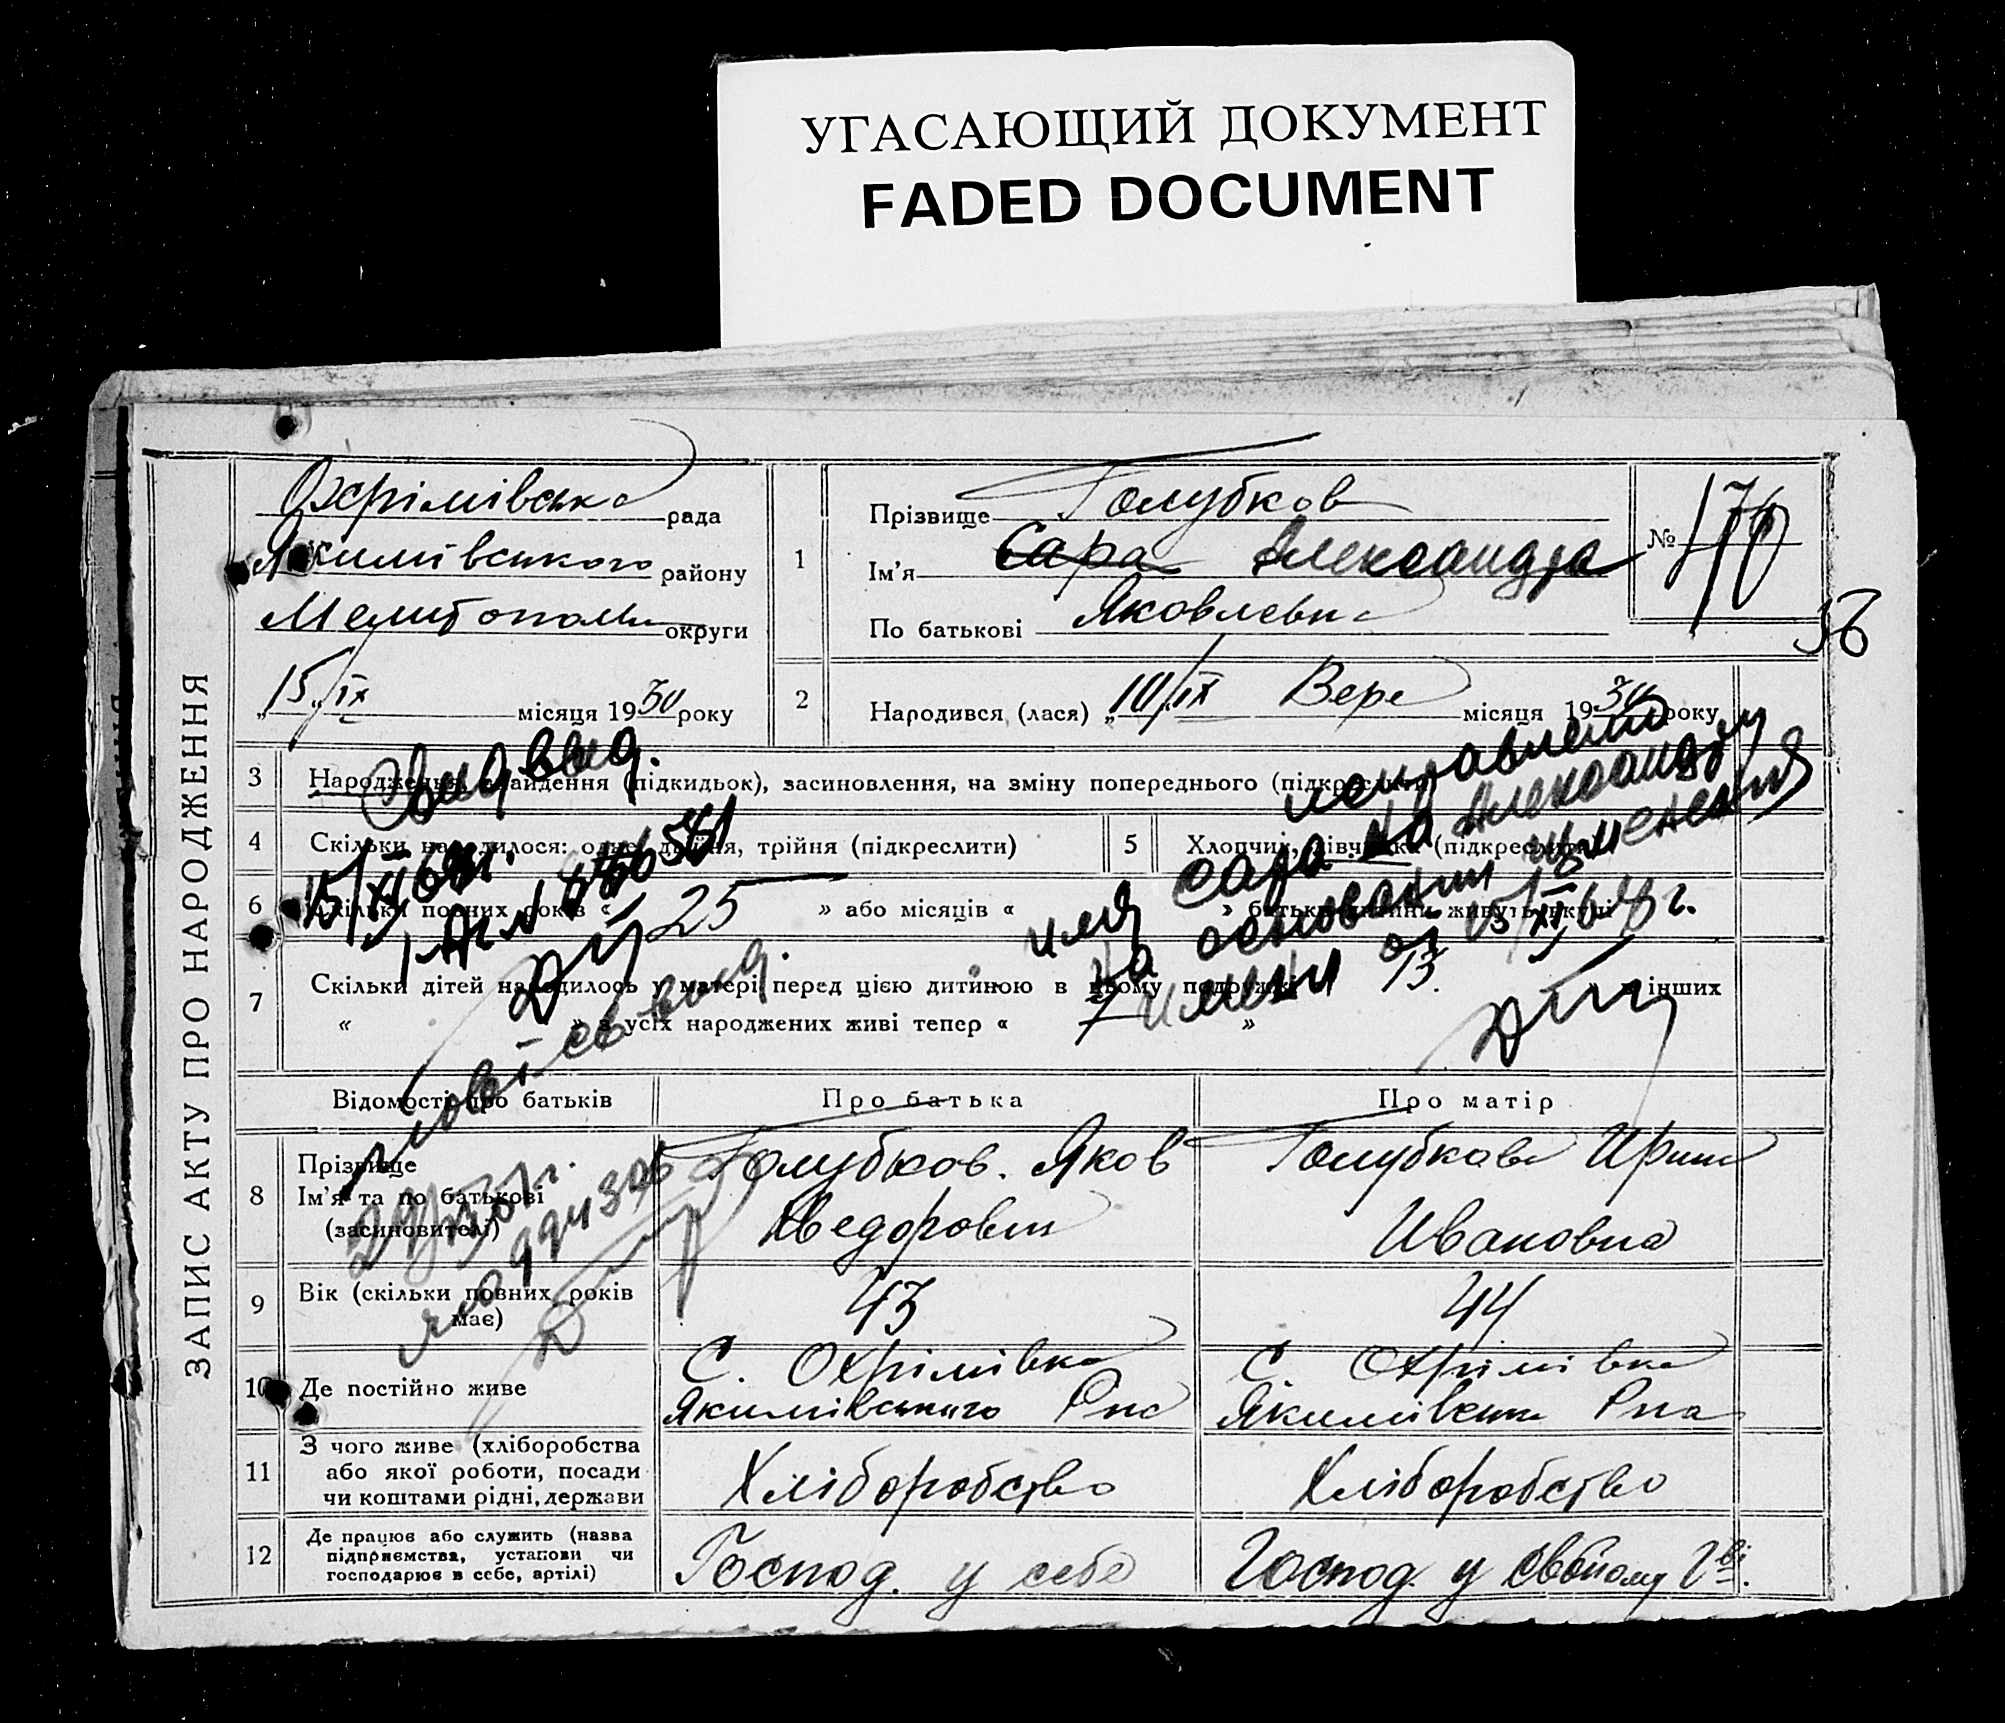 УГАСАЮЩИЙ ДОКУМЕНТ
FADED DOCUMENT
ЗАПИС АКТУ ПРО НАРОДЖЕННЯ
Охрімівська рада
Якимівського району
Мелитополь округи
„15„ IX місяця 1930 року
1
Прізвище Голубков
Ім'я Сара Александра
По батькові Яковлевна
№ 170
36
2
Народився (лася) „10/IX Вере місяця 1930 року
3 Народження, знайдення (підкидьок), засиновлення, на зміну попереднього (підкреслити)
4 Скільки народилося: одне, двійня, трійня (підкреслити)
5 Хлопчик, дівчинка (підкреслити)
6 Скільки повних років « 25 » або місяців « » батьки дитини живуть вкупі
7 Скільки дітей народилось у матері перед цією дитиною в цьому подружжі 13. інших
« » з усіх народжених живі тепер « 7 »
исправлено
имя Сара на Александру
на основании изменения
имени от 15/XI 68 г.
Відомості про батьків
Про батька
Про матір
8
Прізвище
Ім'я та по батькові
(засиновителі)
Голубков. Яков
Федорович
Голубкова Ирина
Ивановна
9 Вік (скільки повних років має)
43
44
10 Де постійно живе
С. Охрімівка
Якимівського Рна
С. Охрімівка
Якимівськ Рна
11
З чого живе (хліборобства
або якої роботи, посади
чи коштами рідні, держави
Хліборобство
Хліборобство
12
Де працює або служить (назва
підприємства, установи чи
господарює в себе, артілі)
Господ. у себе
Господ. у свойому г-ві.